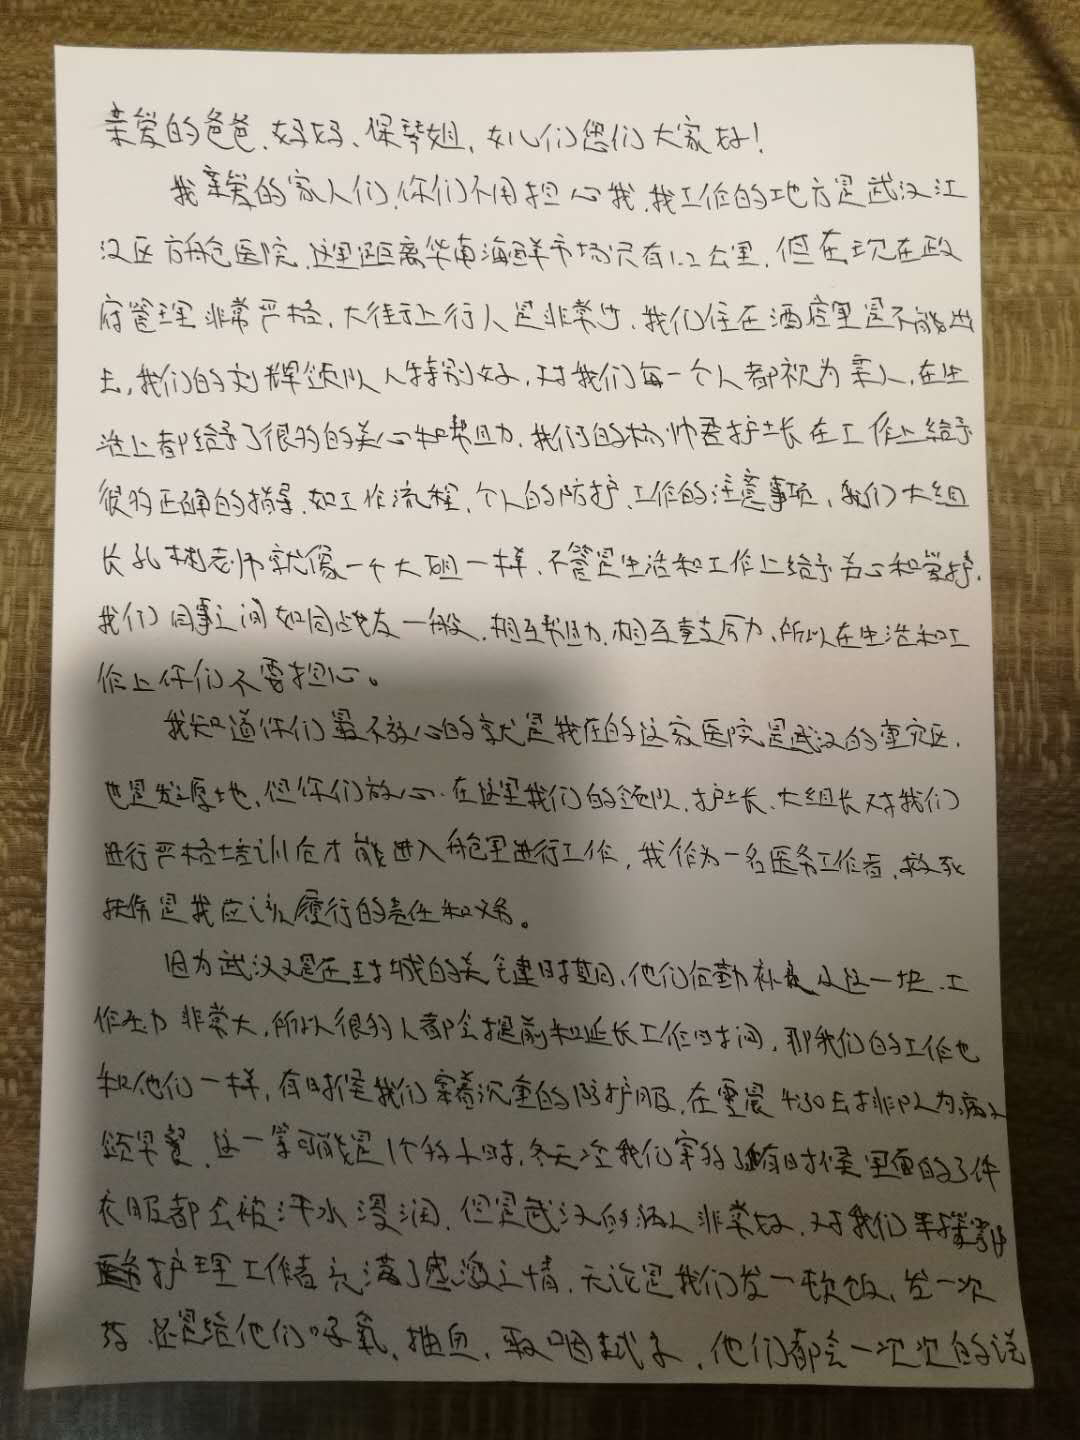 亲爱的爸爸、妈妈、保琴姐,女儿们您们大家好!
我亲爱的家人们,你们不用担心我,我工作的地方是武汉江
汉区方舱医院,这里距离华南海鲜市场只有1.2公里,但在现在政
府管理非常严格,大街上行人是非常少,我们住在酒店里是不能出
去,我们的刘辉领队人特别好,对我们每一个人都视为亲人,在生
活上都给予了很多的关心和帮助,我们的杨帅君护士长在工作上给予
很多正确的指导,如工作流程,个人的防护,工作的注意事项,我们大组
长孔彬老师就像一个大姐一样,不管是生活和工作上给予关心和爱护,
我们同事之间如同战友一般,相互帮助,相互支力,所以在生活和工
作上你们不要担心。
我知道你们最不放心的就是我在的这家医院是武汉的重灾区,
也是发源地,但你们放心,在这里我们的领队,护士长,大组长对我们
进行严格培训后才能进入舱里进行工作,我作为一名医务工作者,救死
扶伤是我应该履行的责任和义务。
因为武汉又是在封城的关键时期,他们后勤补这一块,工
作压力非常大,所以很多人都会提前和延长工作时间,那我们的工作也
和他们一样,有时候我们穿着沉重的防护服,在凌晨4:30去排队为病人
领早餐,这一等可能是1个多小时,冬天冷我们穿多了有时候里面的3件
衣服都会被汗水浸润,但是武汉的病人非常好,对我们
护理工作者充满了感激之情,无论是我们发一顿饭,发一次
药,还是给他们吸氧,抽血,取咽拭子,他们都会一次次的说